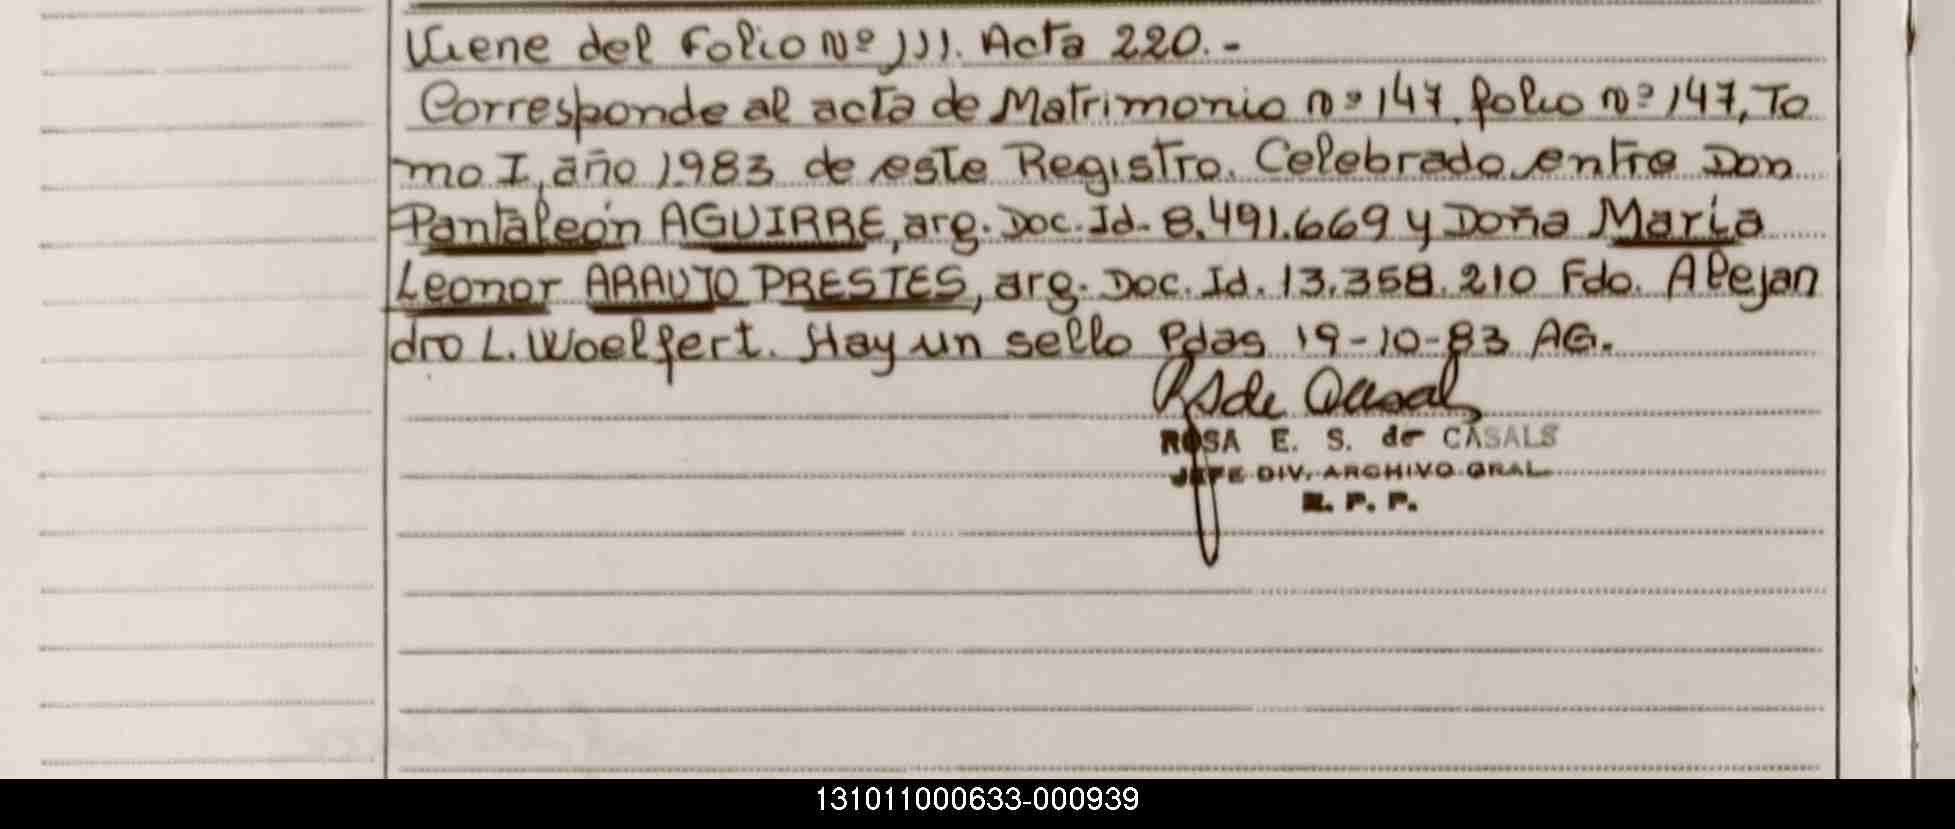 Viene del Folio Nº 111. Acta 220.-
Corresponde al acta de Matrimonio nº 147. folio nº 147, To
mo I, año 1983 de este Registro. Celebrado entre Don
Pantaleón AGUIRRE, arg. Doc. Id. 8.491.669 y Doña María
Leonor ARAUJO PRESTES, arg. Doc. Id. 13.358.210 Fdo. Alejan
dro L. Woelfert. Hay un sello Pdas 19-10-83 AG.
ROSA E. S. de CASALS
JEFE DIV. ARCHIVO GRAL
R. P. P.
131011000633-000939